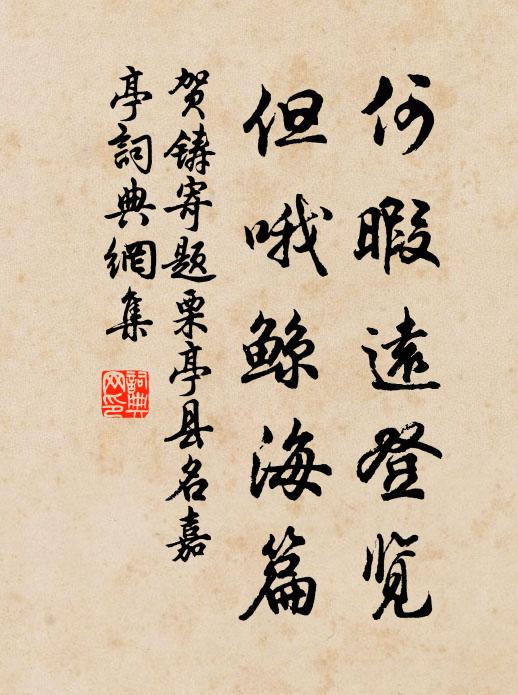 何暇遠登览
但哦鲸海篇
贺鑄寄题栗亭县名嘉
亭詞典網集
詞典网印